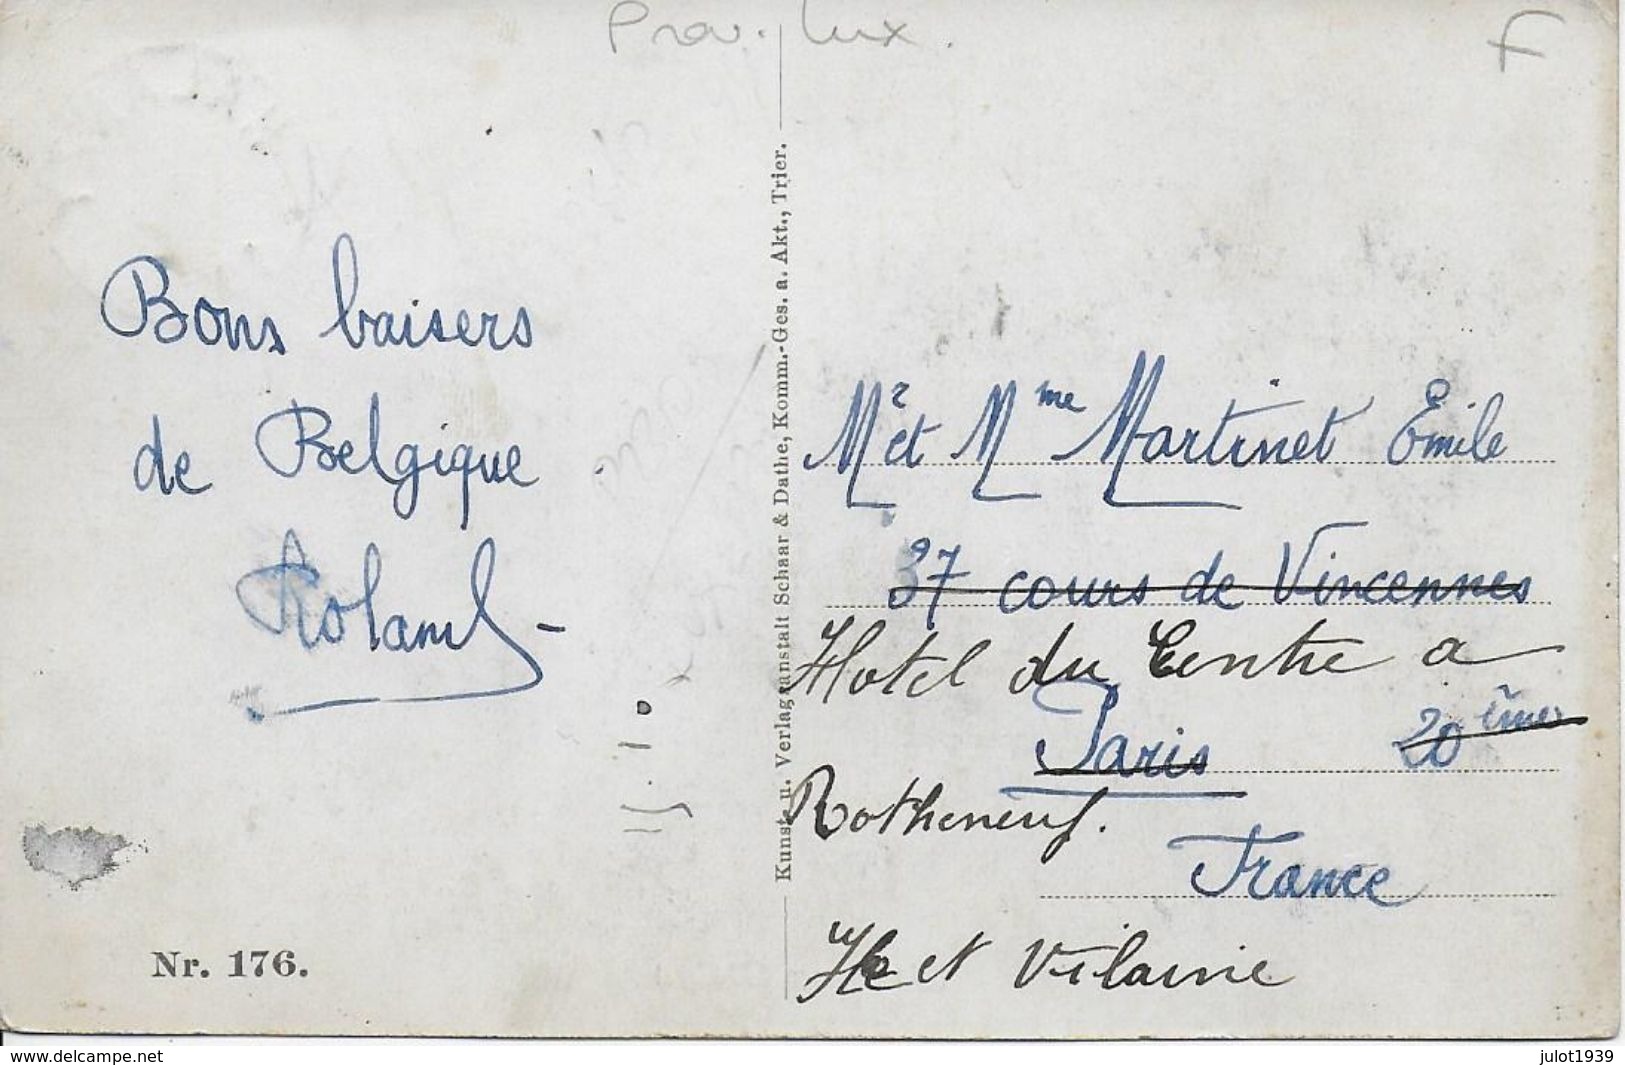 Prov. Lux.
F
Bons baisers
de Belgique
Roland
Nr. 176.
Kunst- u. Verlagsanstalt Schaar & Dathe, Komm.-Ges. a. Akt., Trier.
Mr et Mme Martinet Émile
37 cours de Vincennes
Hotel du Centre a
Paris 20ème
Rotheneuf.
France
Ile et Vilaine
www.delcampe.net
julot1939